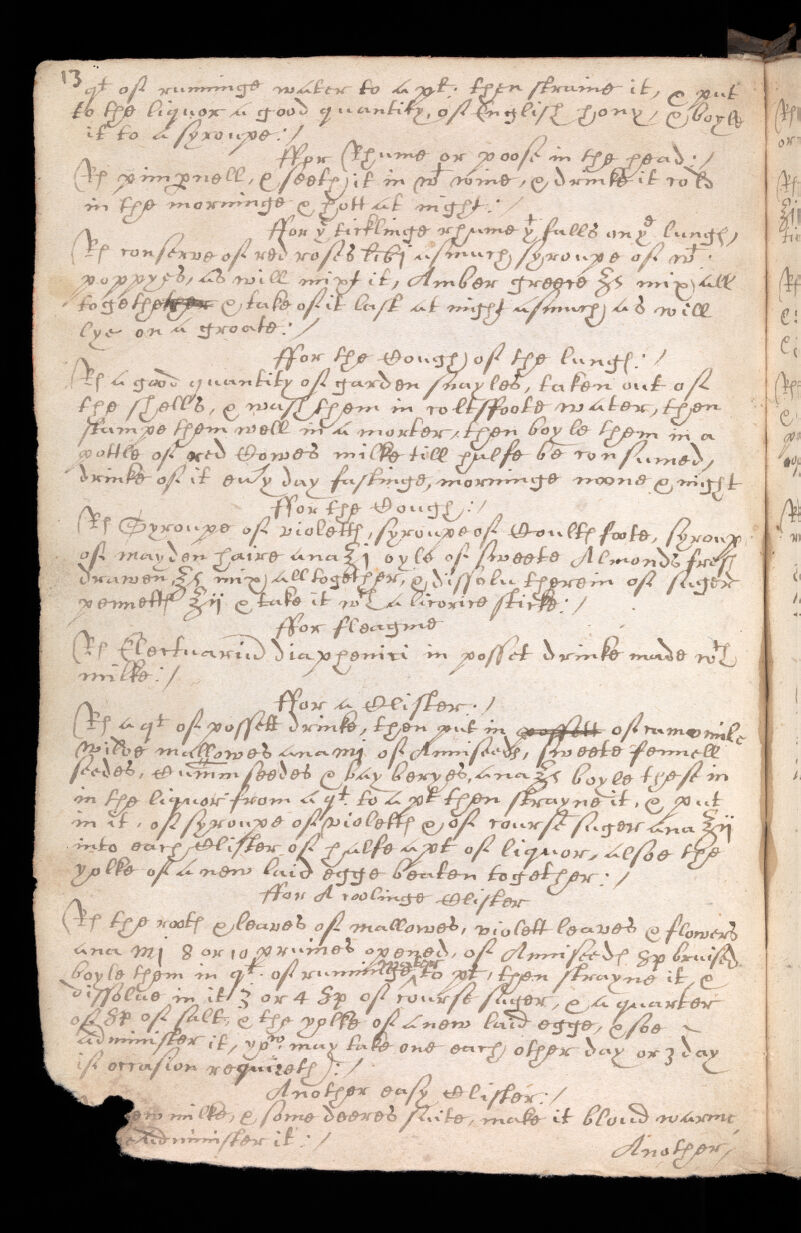 13
qt of runninge water to a pt. then straine it, & put
to the liquor a good quantity, of English hony, & boyle
it to a syroupe:/
ffor Rhume or poose in the head:/
Rx pimpernell, & seeth it in wt wine, & drinke it cold
in the morninge & hott at night:/
ffor ye ticklinge rhume yt falls on ye lungs,
Rx conserve of red roses asmuch syroupe of wt
poppyes, as will mixt it, Amber greece ʒs mix all
together & take of it last at night asmuch as will
lye on a groate:/
ffor the Cough of the lungs:/
Rx a good quantity of garden snayles, taken out of
the shells, & wash them in coltsfoote water, then
stampe them well in a morter, then boyle them in a
pottle of red Cowes milke till halfe be consumed,
drinke of it euy day fastinge, morninge noone & night
ffor the Cough:/
Rx Syroupe of violetts, syroupe of Coults foote, syroup
of mayden haire ana ℥j oyle of sweete Almonds fresh
drawen ℥s mix all together, & dissolu therein of suger
pennetts ℥ij & take it wth a licorice sticke:/
ffor fleagme
Rx Electuariu diaphenici in possct drinke made wth
milke:/
ffor a Clister:/
Rx a qt of possett drinke, then put in possett of camomile
wilde mallowes ana mj of Anniseeds, sweete fennell
seedes, Cummin seedes & bay beryes, ana ℥s boyle these in
in the liquor from a qt. to a pt then strayne it, & put
in it, of syroupe of violetts & of course suger ana ℥ij
into each Clister of halfe a pt of liquor, alsoe the
yolke of a new laid egge beaten together:/
ffor A coolinge Clister
Rx the roots & leaves of mallowes, violett leaves & flowers
ana Mj 8 or 10 pruines opened, of Anniseeds Sp bruised
boyle them in qt. of runninge water to pt, then strayne it, &
dissolue in it 3 or 4 Sp of course suger, & a quarter
of Sp of salt, & the yolke of a new laid egge, & soe
administer it, may take one each other day or 3 day
if occasion requireth:/
Another easy Clister:/
new milke, & some deeres suite, make it bloud warme,
& administer it:/
Another/